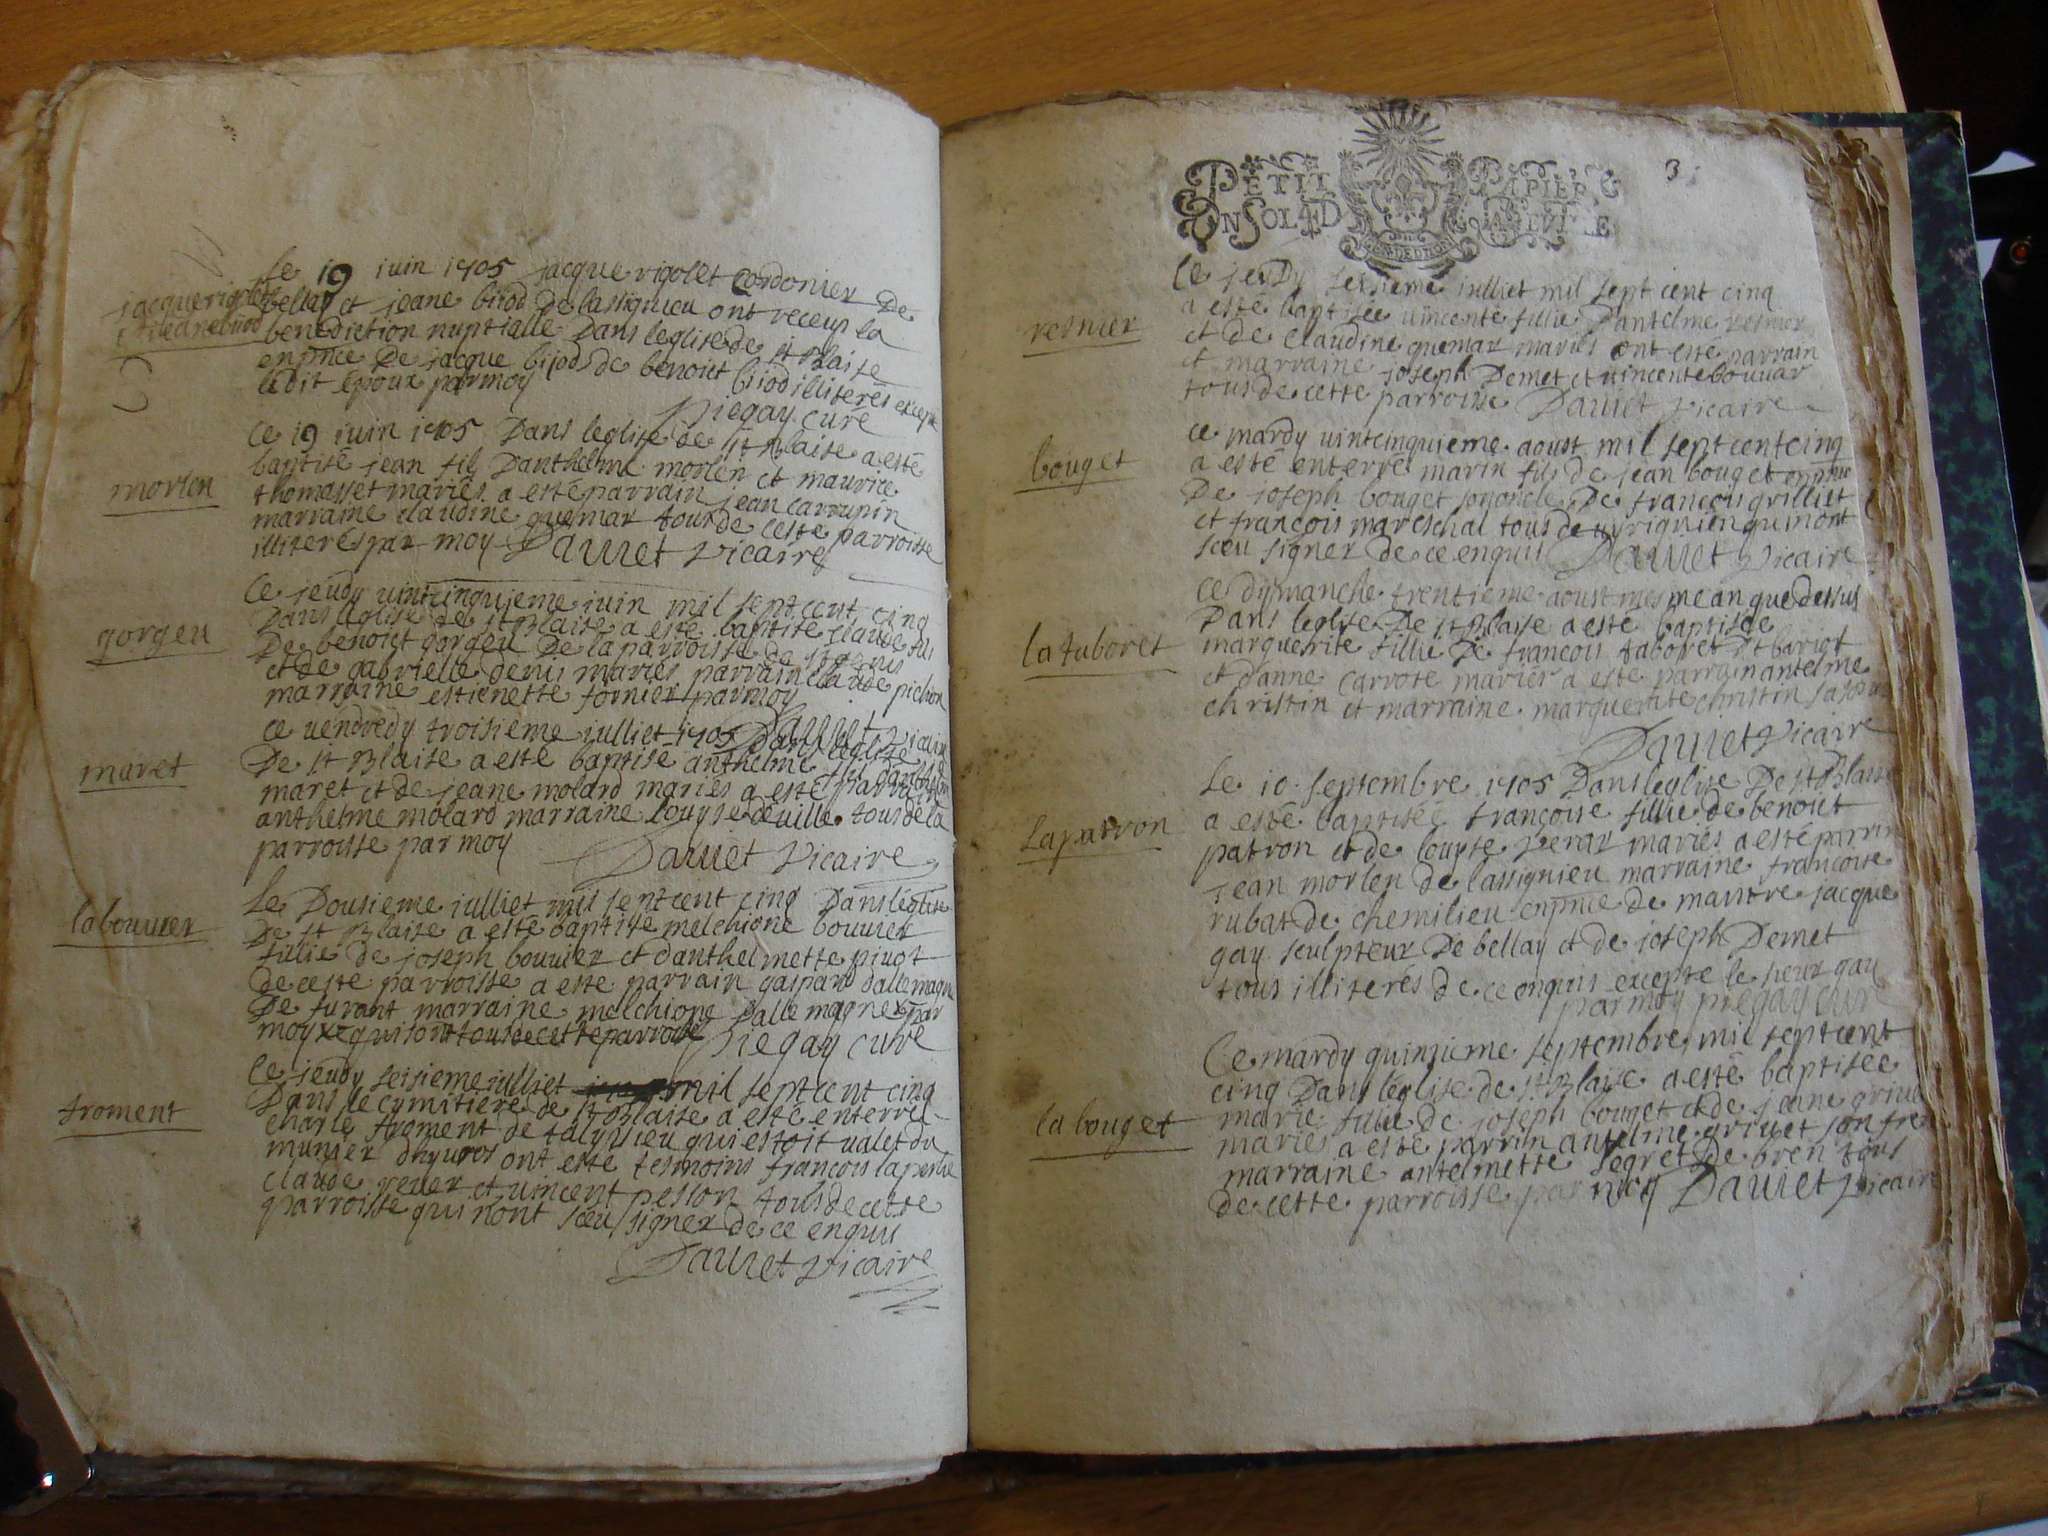 Le 19 juin 1705 jacque rigolet Cordonier De
jacque rigolet
et jeane biiod
bellay et jeane biiod de lassignieu ont receup la
benediction nuptialle Dans leglise de st Blaise
enpnce De jacque biiod de benoict biiod illiterés excepte
ledit époux par moy
Piegay curé
Ce 19 juin 1705 Dans leglise de st Blaise a esté
morlen
baptisé jean fils Danthelme morlen et maurice
thomasset mariés a esté parrain jean carrupin
marraine claudine quemar tous de ceste parroisse
illiterés par moy Dauuet Vicaire
Ce jeudy vintcinquieme juin mil sept cent cinq
Dans leglise de st Blaise a esté baptisé claude fils
gorgeu
De benoict gorgeu De la parroisse de
et de gabrielle denis mariés parrain claude pichon
marraine estienette fornier par moy
Dauuet vicaire
ce vendredy troisieme iulliet 1705 Dans leglise
maret
De st Blaise a esté baptisé anthelme fils danthelme
maret et de jeane molard mariés a esté parrain
anthelme molard marraine louyse deuille tous de la
parroisse par moy
Dauuet Vicaire
Le Dousieme iulliet mil sept cent cinq Dans leglise
labouuier
De st Blaise a esté baptisée melchione bouuier
fillie de joseph bouuier et danthelmette piuot
de ceste parroisse a esté parrain gaspard dallemagne
De furant marraine melchione Dalle magne par
moy qui sont tous de cette parroisse Piegay curé
Ce jeudy seisieme iulliet mil sept cent cinq
Dans le cymitiere de st Blaise a esté enterré
froment
charle froment de talyssieu qui estoit ualet du
munier ont esté tesmoins francois laperle
claude reuer et vincent pesson tous de cette
parroisse qui nont sceu signer de ce enquis
Dauuet Vicaire
3
PETIT PAPIER
UN SOL 4 D LA FEUILLE
Ce jeudy seisieme iulliet mil sept cent cinq
a esté baptisée vincente fillie Dantelme resnier
resnier
et de claudine quemar mariés ont esté parrain
et marraine joseph Demet et vincente bouuar
tous de cette parroisse Dauuet Vicaire
ce mardy vintcinquieme aoust mil sept cent cinq
bouget
a esté enterré marin fils de jean bouget enpnce
De joseph bouget son oncle De francois grilliet
et francois mareschal tous de uyrignien qui nont
sceu signer de ce enquis Dauuet Vicaire
Ce dymanche trentieme aoust mesme an que dessus
Dans leglise De st Blaise a esté baptisée
la taboret
marguerite fillie De francois taboret
et danne carrote mariés a esté parrain antelme
christin et marraine marguerite christin
Dauuet Vicaire
Le 10 septembre 1705 Dans leglise De st Blaise
a esté baptisée francoise fillie de benoict
la patron
patron et de louyse perar mariés a esté parrin
jean morlen de lassignieu marraine francoise
rubat de chemilieu enpnce de maistre jacque
gay sculpteur De bellay et de joseph Demet
tous illiterés de ce enquis excepte le sieur gay
par moy piegay curé
Ce mardy quinzieme septembre mil sept cent
cinq Dans leglise de st Blaise a esté baptisée
la bouget
marie fillie de joseph bouget et de jeane griuet
mariés a esté parrin antelme griuet son frere
marraine antelmette segret de bren tous
de cette parroisse par moy Dauuet vicaire